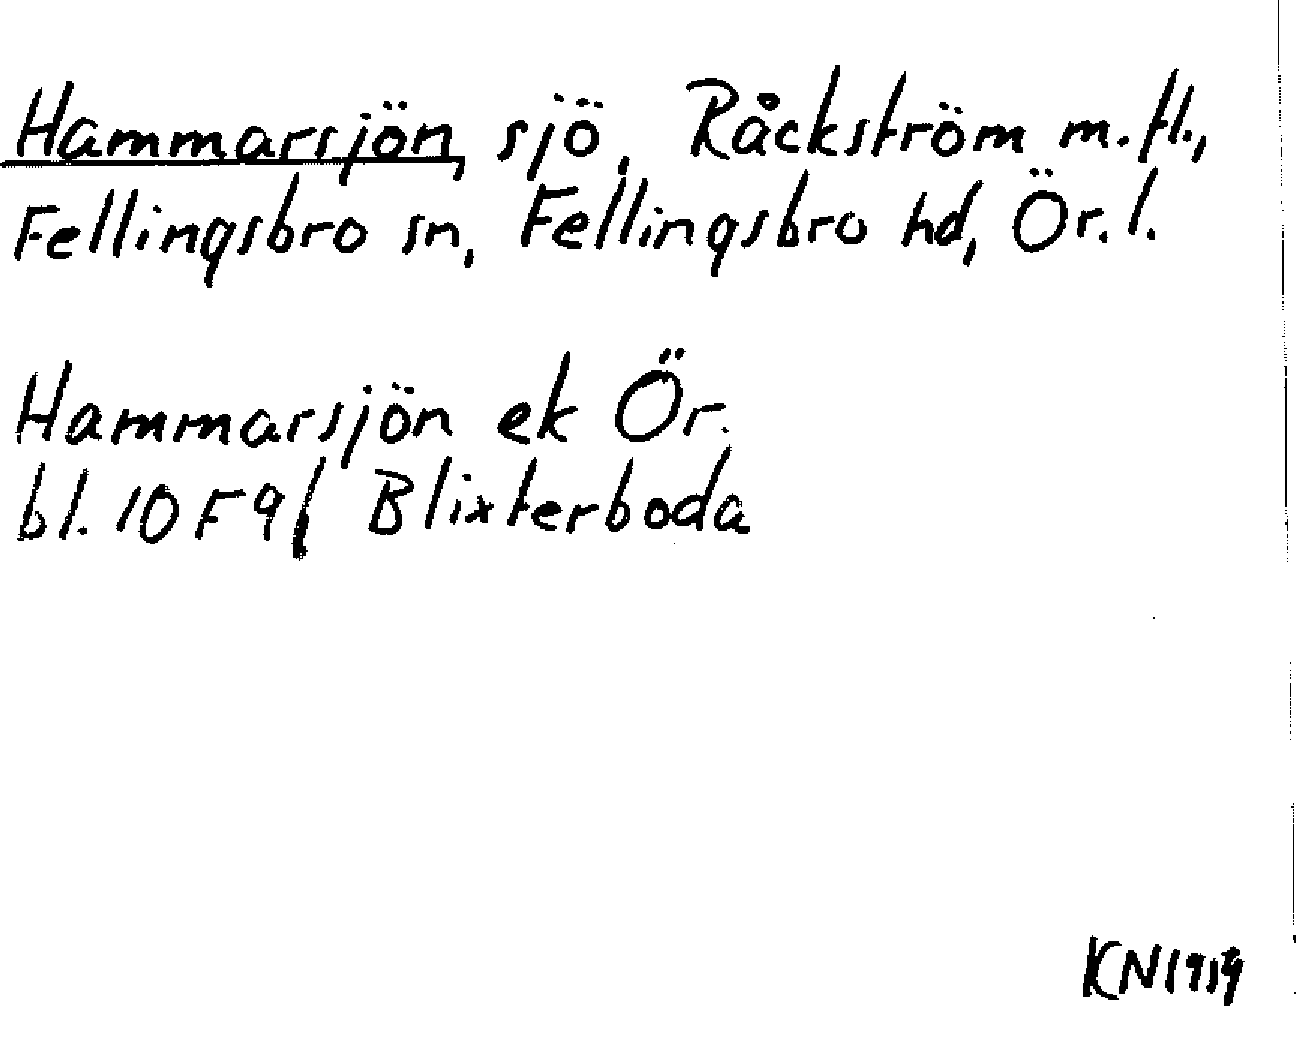 Hammarsjön, sjö, Råckström m.fl.,
Fellingsbro sn, Fellingsbro hd, Ör. l.
Hammarsjön ek Ör.
bl. 10 F 9f Blixterboda
KN 1979